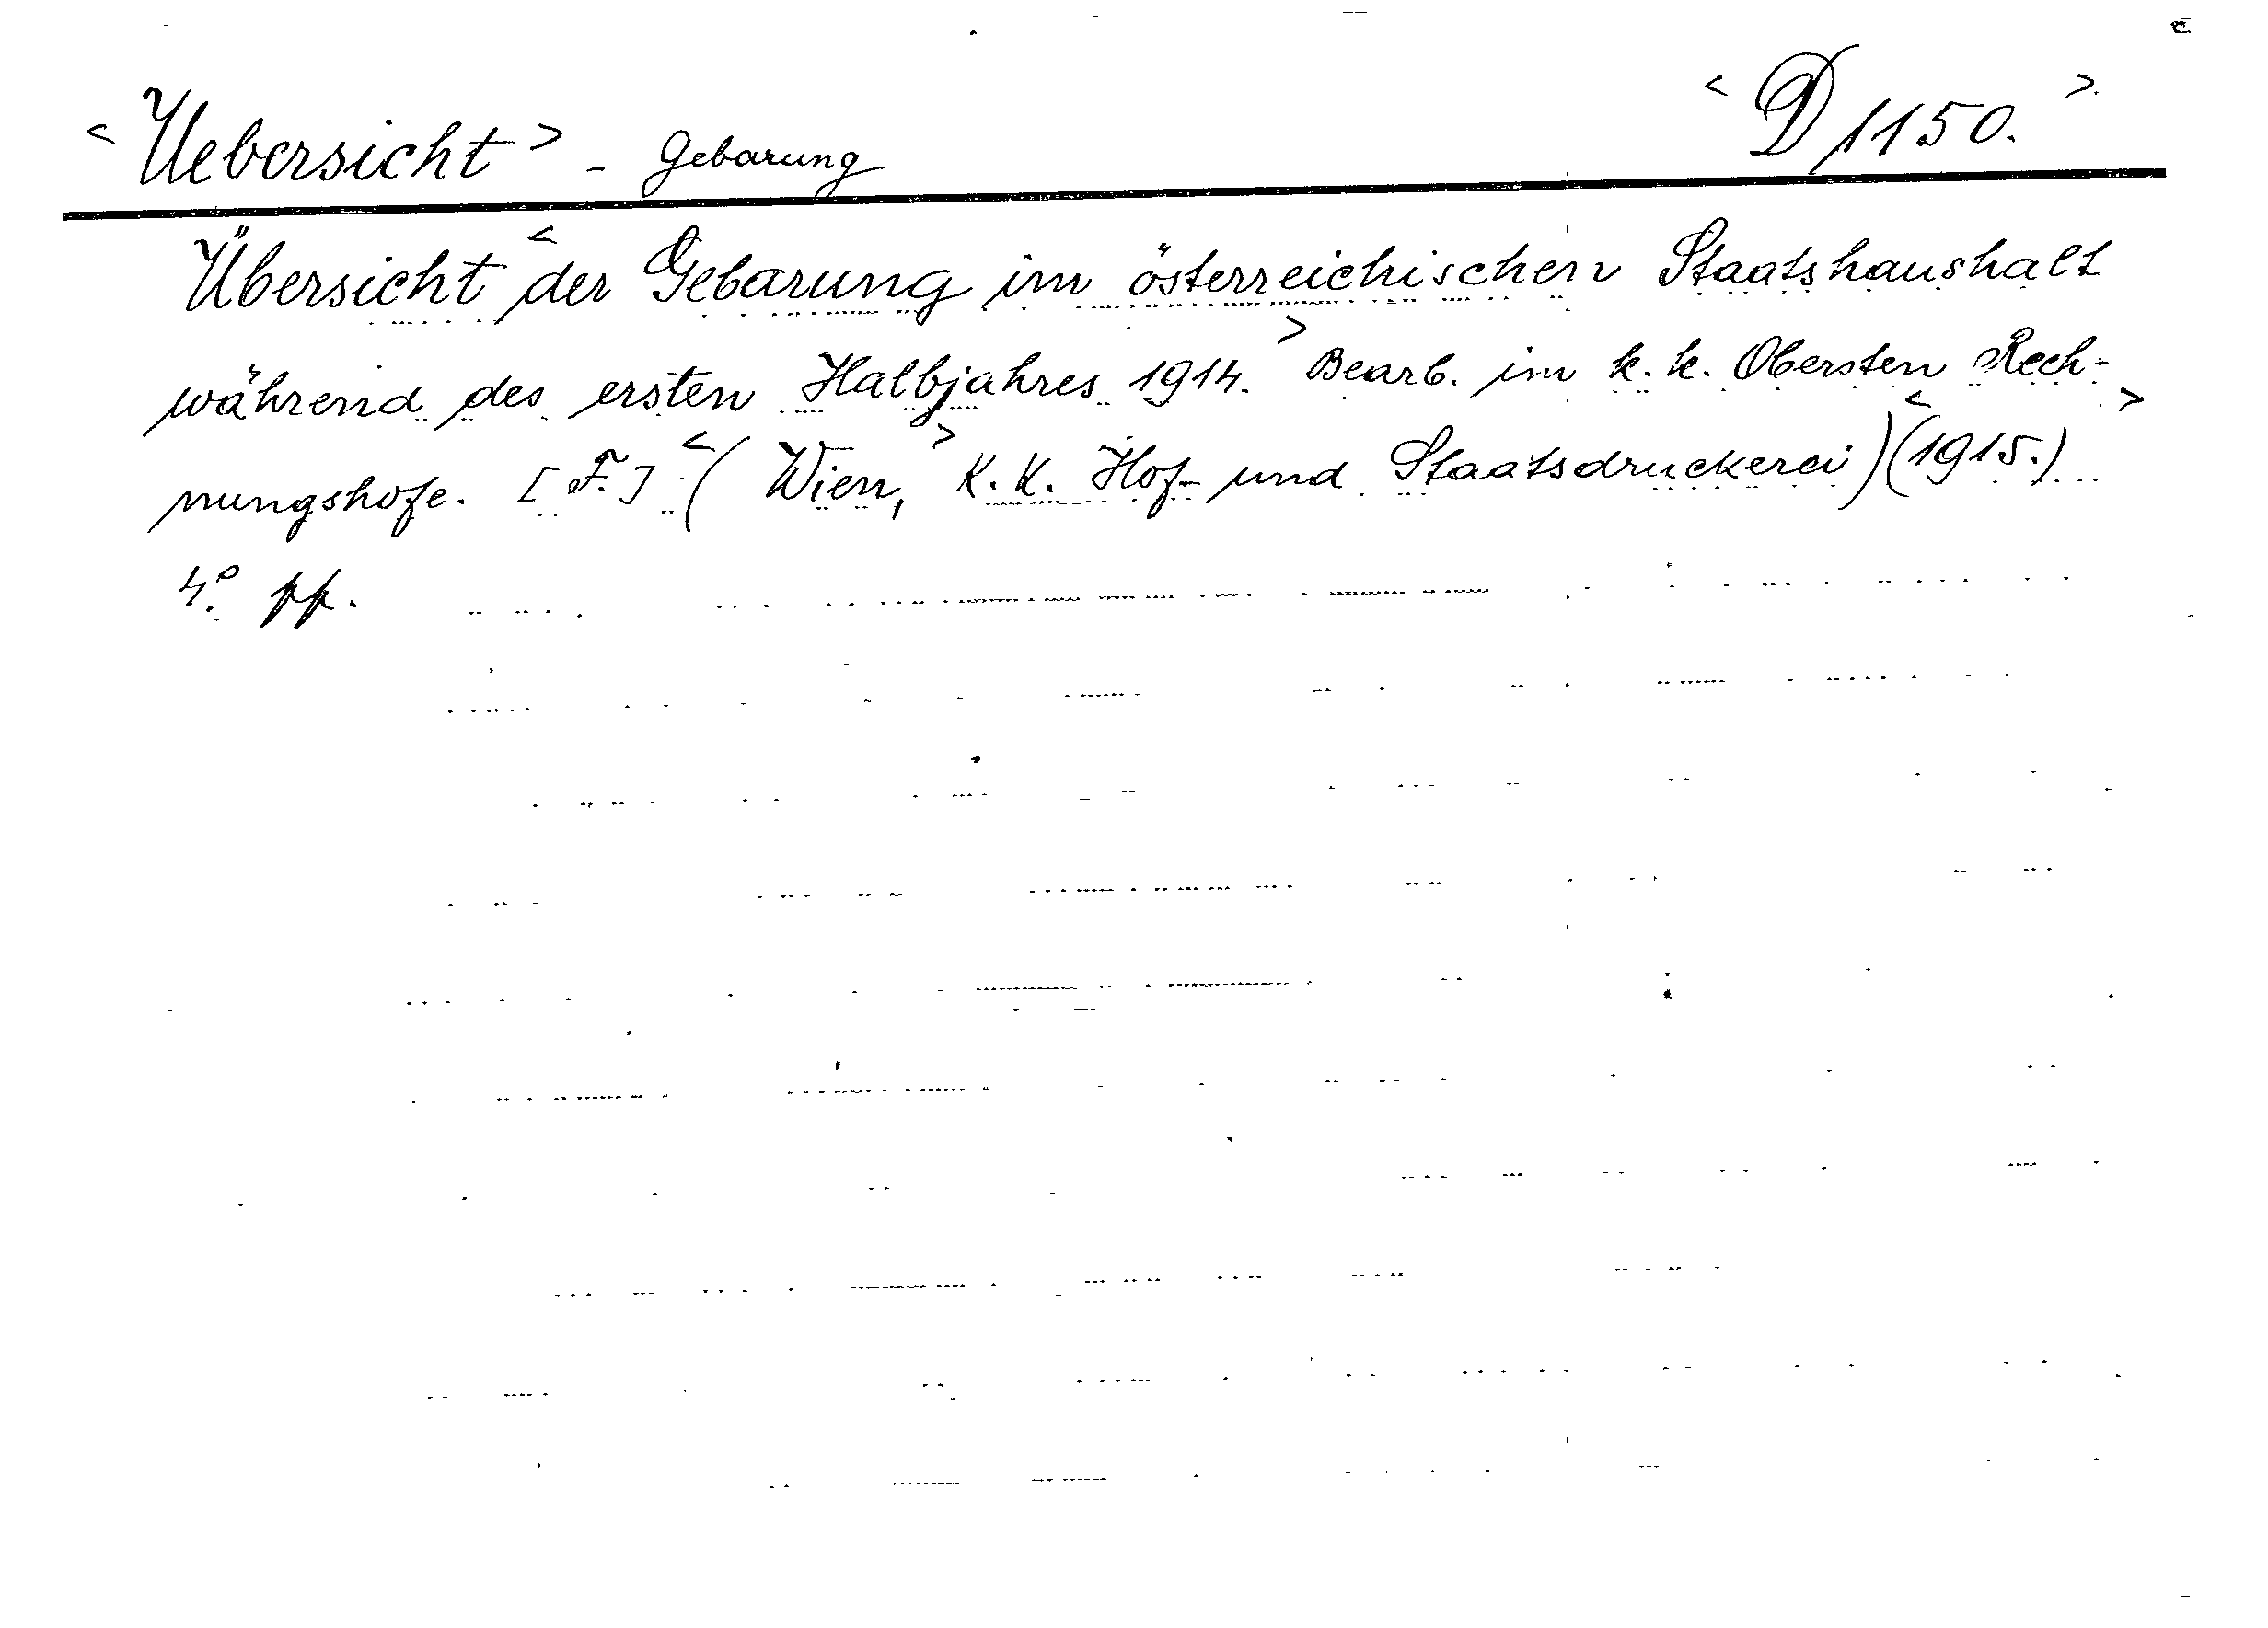 <Uebersicht> - Gebarung <D 1150.>
Übersicht <der Gebarung im österreichischen Staatshaushalt
während des ersten Halbjahres 1914.> Bearb. im k. k. Obersten Rech-
nungshofe. [F.] <(Wien,> K. K. Hof- und Staatsdruckerei) <(1915.)>
4.° pp.